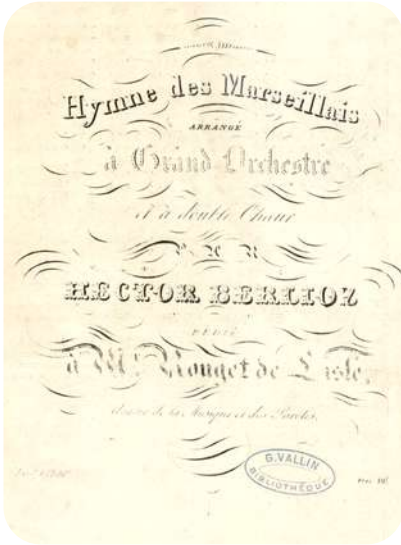 Hymne des Marseillais
ARRANGÉ
à Grand Orchestre
et à double Chœur
PAR
HECTOR BERLIOZ
DÉDIÉ
à Mr. Rouget de Lisle,
de la Musique et des Paroles.
G. VALLIN
BIBLIOTHÈQUE